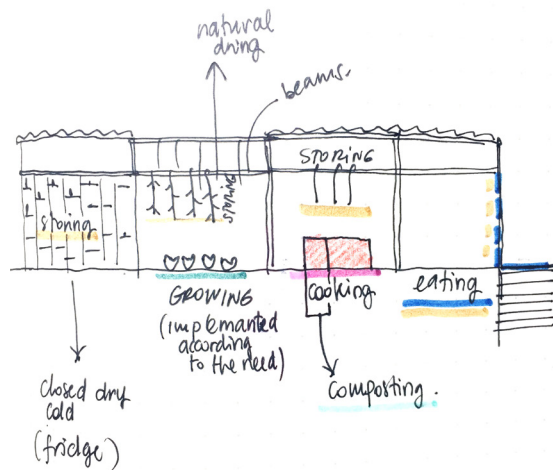 natural
drying
beams.
STORING
storing
drying
GROWING
(implemanted
according
to the need)
cooking
eating
composting.
closed dry
cold
(fridge)